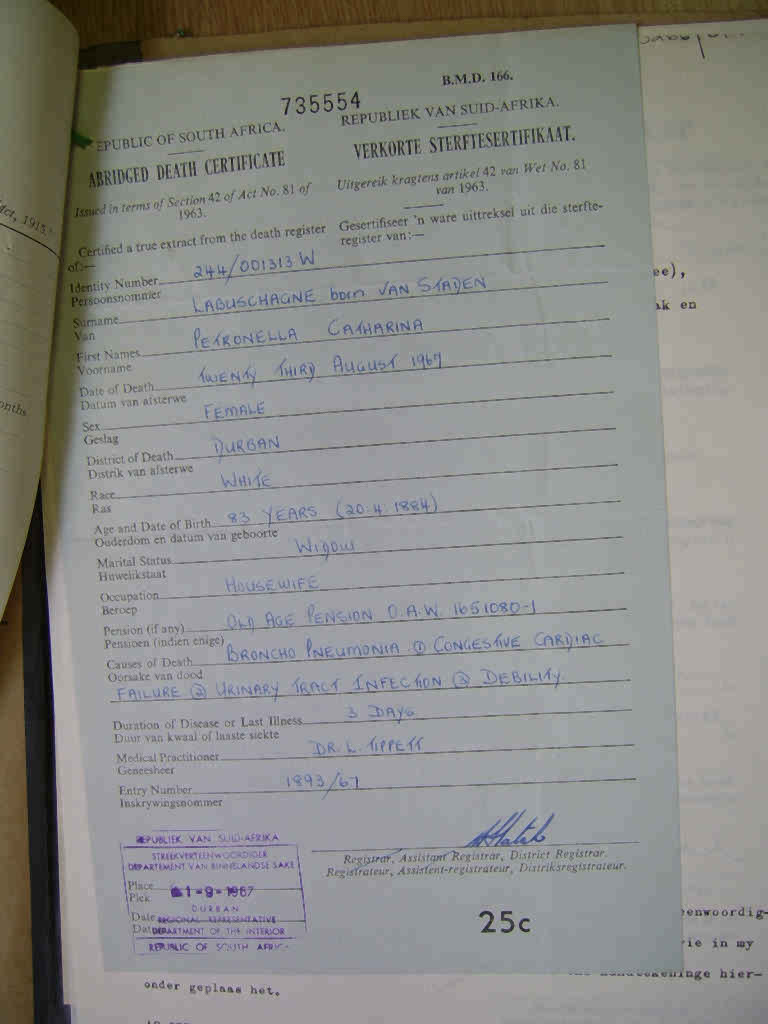 B.M.D. 166.
735554
EPUBLIC OF SOUTH AFRICA.
REPUBLIEK VAN SUID-AFRIKA.
ABRIDGED DEATH CERTIFICATE
VERKORTE STERFTESERTIFIKAAT.
Issued in terms of Section 42 of Act No. 81 of
1963.
Uitgereik kragtens artikel 42 van Wet No. 81
van 1963.
Certified a true extract from the death register
of:—
Gesertifiseer 'n ware uittreksel uit die sterfte-
register van:—
Identity Number 244/001313 W
Persoonsnommer
Surname LABUSCHAGNE born VAN STADEN
Van
First Names PETRONELLA CATHARINA
Voorname
Date of Death TWENTY THIRD AUGUST 1967
Datum van afsterwe
Sex FEMALE
Geslag
District of Death DURBAN
Distrik van afsterwe
Race WHITE
Ras
Age and Date of Birth 83 YEARS (20.4.1884)
Ouderdom en datum van geboorte
Marital Status WIDOW
Huwelikstaat
Occupation HOUSEWIFE
Beroep
Pension (if any) OLD AGE PENSION O.A.W. 1651080-1
Pensioen (indien enige)
Causes of Death BRONCHO PNEUMONIA ① CONGESTIVE CARDIAC
Oorsake van dood
FAILURE ② URINARY TRACT INFECTION ③ DEBILITY.
Duration of Disease or Last Illness 3 DAYS
Duur van kwaal of laaste siekte
Medical Practitioner DR. L. TIPPETT
Geneesheer
Entry Number 1893/67
Inskrywingsnommer
REPUBLIEK VAN SUID-AFRIKA
STREEKVERTEENWOORDIGER
DEPARTEMENT VAN BINNELANDSE SAKE
Place
Plek
1-9-1967
DURBAN
Date REGIONAL REPRESENTATIVE
DEPARTMENT OF THE INTERIOR
REPUBLIC OF SOUTH AFRIC
Registrar, Assistant Registrar, District Registrar.
Registrateur, Assistent-registrateur, Distriksregistrateur.
25c
Act, 1915,
onths
ee),
ak en
eenwoordig-
rie in my
hier-
onder geplaas het.